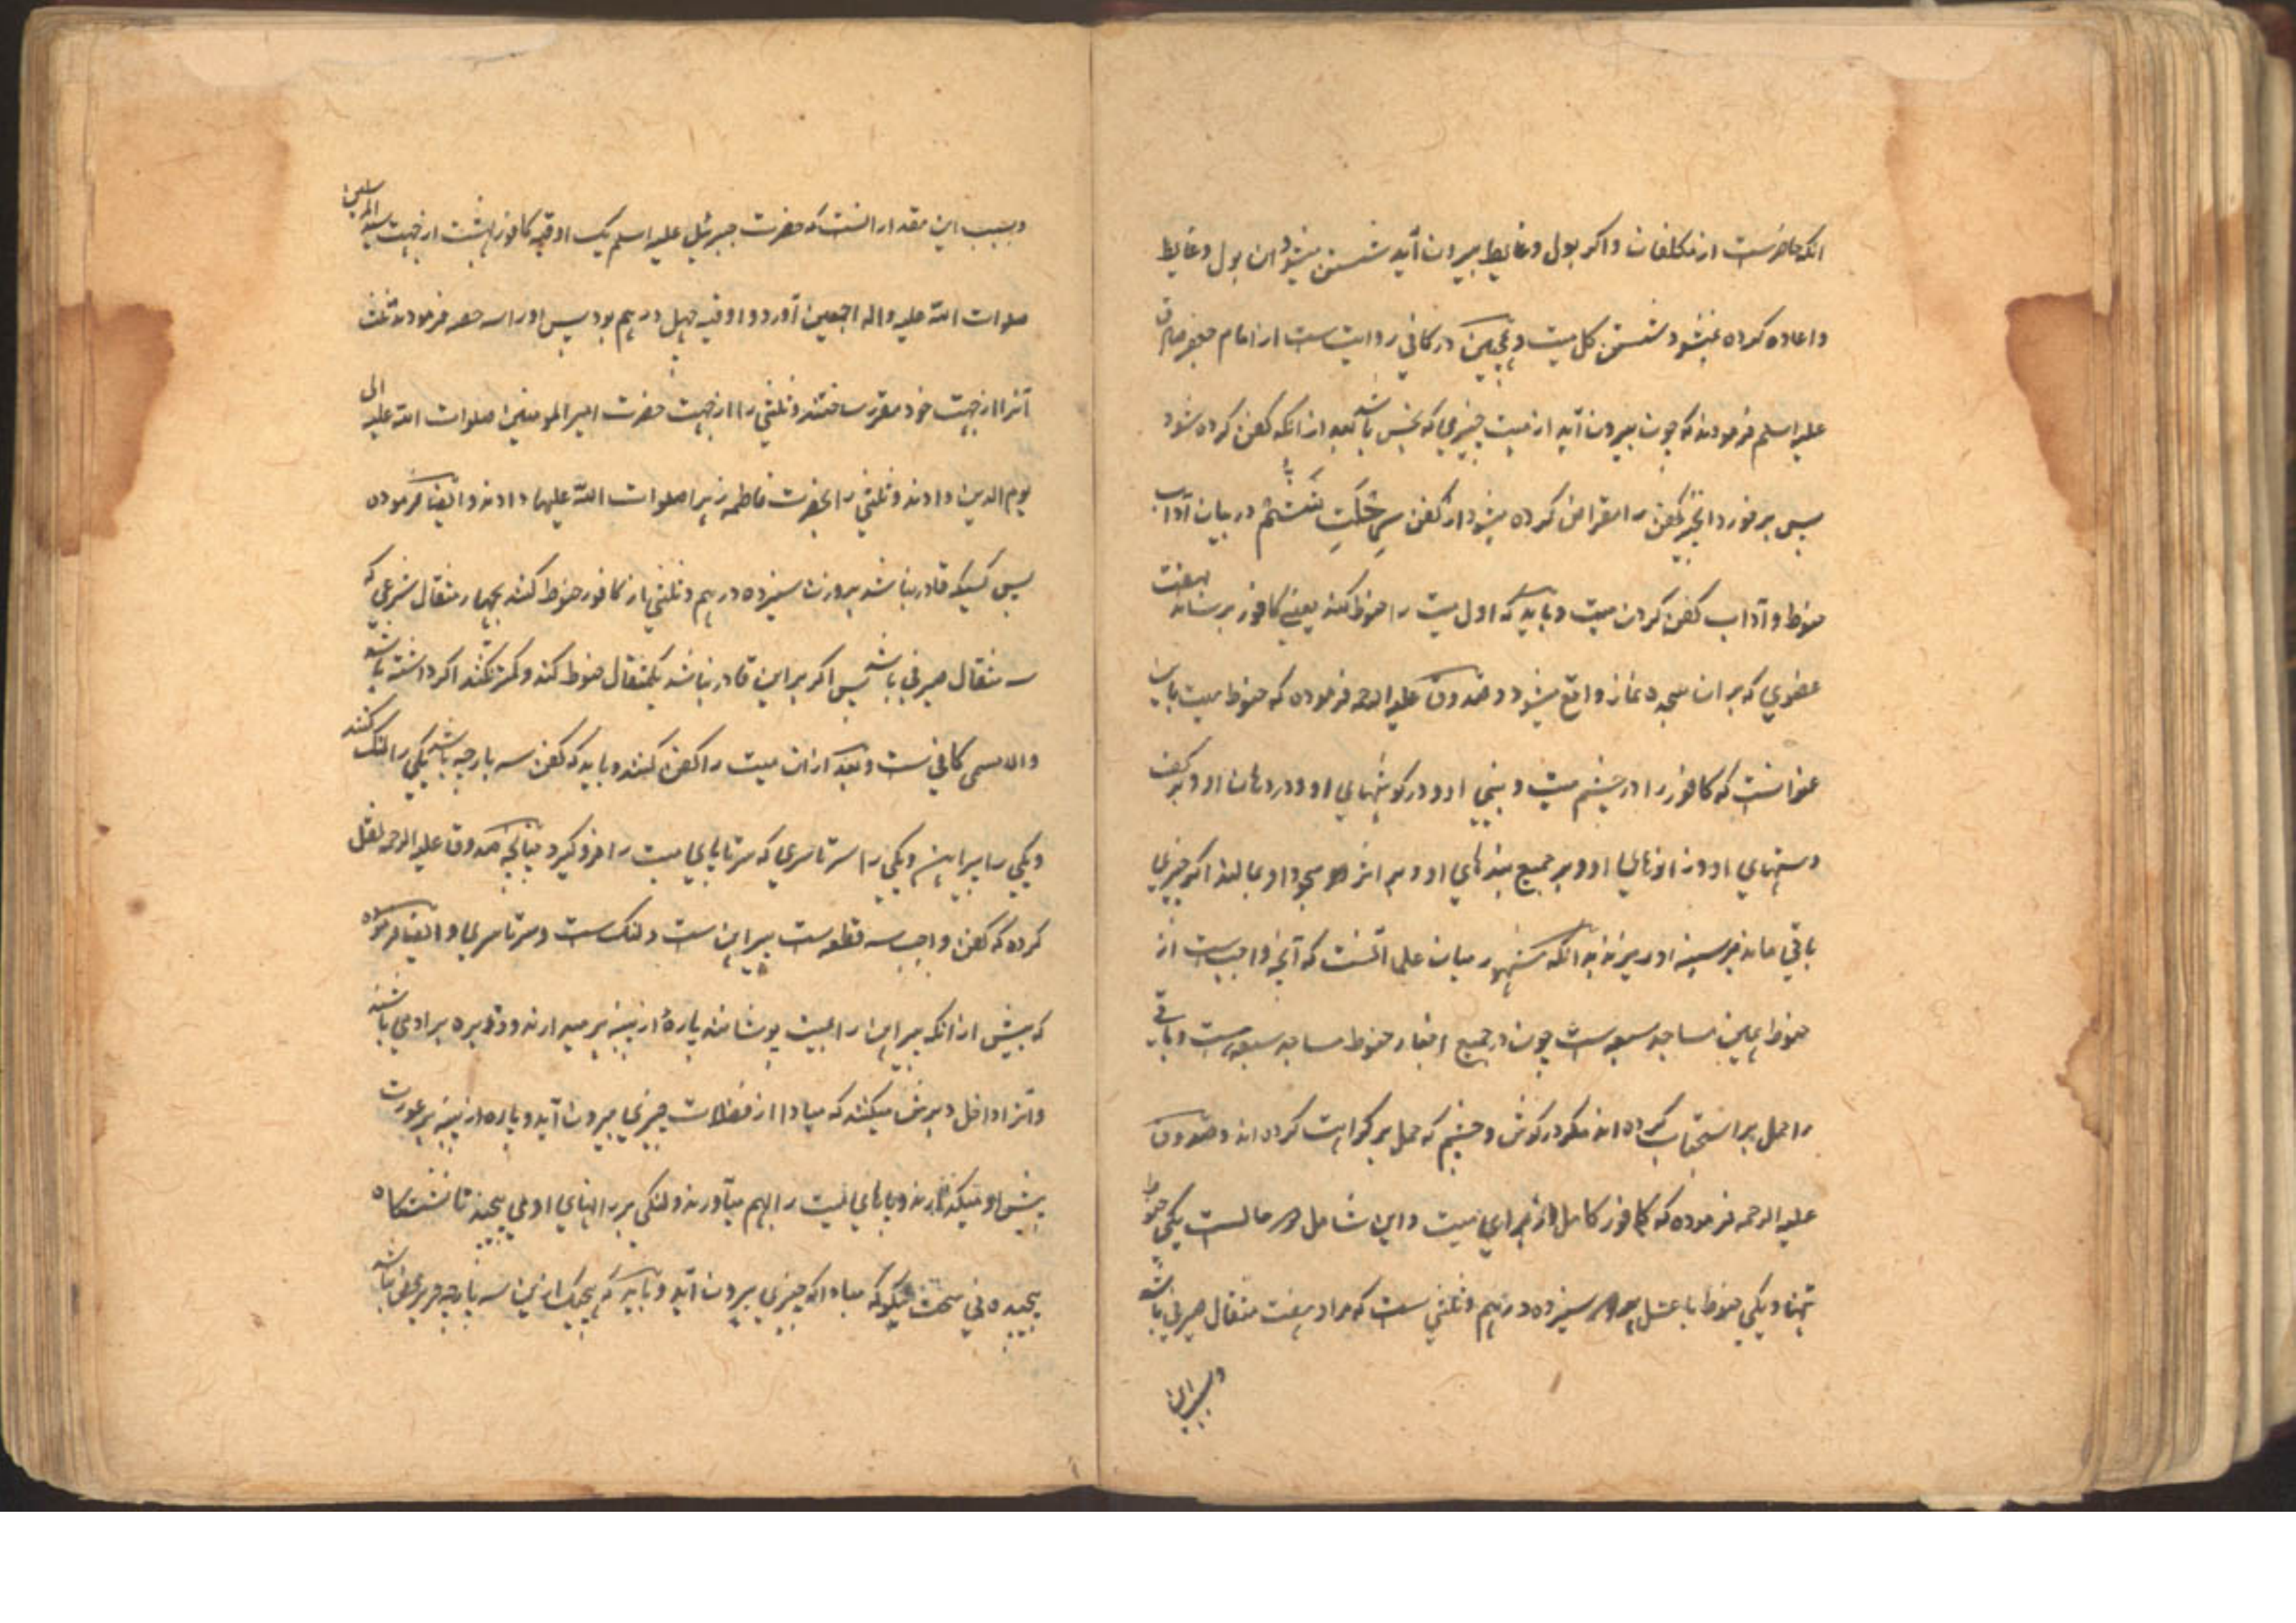 انکه حاضرست از مکلفان و اکر بول و غایط بیرون آید شستن میشود ان بول و غایط
و اعاده کرده نمیشود شستن کل میت و همچنین در کافی روایت ست از امام جعفر صادق
علیه السلم فرمودند که چون بیرون آید از میت چیزی که نجس باشد بعد از انکه کفن کرده شود
پس برخورد انچیز بکفن مقراض کرده میشود از کفن در بیان آداب
حنوط و آداب کفن کردن میت و باید که اول میت را حنوط کنند یعنی کافور برسانند بهفت
عضوی که بر ان سجده نماز واقع میشود و صدوق علیه الرحمه فرموده که حنوط میت باین
عنوانست که کافور را در چشم میت و بینی او و در کوشهای او و در دهان او و بر کف
دستهای او و زانوهای او و بر جمیع بندهای او و بر اثر سجود او بمالند اکر چیزی
باقی ماند بر سینه او ریزند بدانکه مشهور میان علما انست که آنچه واجب ست از
حنوط همین مساجد سبعه ست چون در جمیع اخبار حنوط مساجد سبعه هست و باقی
را حمل بر استحباب کرده اند مکر در کوش و چشم که حمل بر کراهت کرده اند و صدوق
علیه الرحمه فرموده که کافور کامل از برای میت و این شامل دو حالست یکی حنوط
تنها و یکی حنوط با غسل سیزده درهم و ثلثی ست که مراد هفت مثقال صیرفی باشد
و سبب این
و سبب این مقدار انست که حضرت جبرئیل علیه السلم یک اوقیه کافور بهشت از جهت سید المرسلین
صلوات الله علیه و اله اجمعین آورد و اوقیه چهل درهم بود پس اورا سه حصه فرمودند ثلث
آنرا از جهت خود مقرر ساختند و ثلثی را از جهت حضرت امیر المومنین صلوات الله علیه الی
یوم الدین دادند و ثلثی را بحضرت فاطمه زهرا صلوات الله علیها دادند و ایضا فرموده
پس کسیکه قادر نباشد بر وزن سیزده درهم و ثلثی از کافور حنوط کنند بچهار مثقال شرعی که
سه مثقال صیرفی باشد پس اکر بر این قادر نباشد بیکمثقال حنوط کنند و کمتر نکنند اکر داشته باشد
و الا مسمی کافی ست و بعد از ان میت را کفن کنند و باید که کفن سه پارچه باشد یکی را لنک کنند
و یکی را پیراهن و یکی را سرتاسری که سر تا پای میت را فرو کیرد چنانچه صدوق علیه الرحمه نقل
کرده که کفن واجب سه قطعه ست پیراهن ست و لنک ست و سرتاسری و ایضا فرموده
که پیش از انکه پیراهن را بمیت پوشانند پارهٔ از پنبه بر میدارند و ذریره بر او می پاشند
و آنرا داخل دبرش میکنند که مبادا از فضلات چیزی بیرون آید و پاره از پنبه بر عورت
پیش او میکذارند و پاهای میت را بهم میآورند و لنکی بر رانهای او می پیچند تا نشستکاه
پیچیده نی سخت نیکو که مبادا که چیزی بیرون آید و باید که هیچیک از این سه پارچه حریر محض نباشد